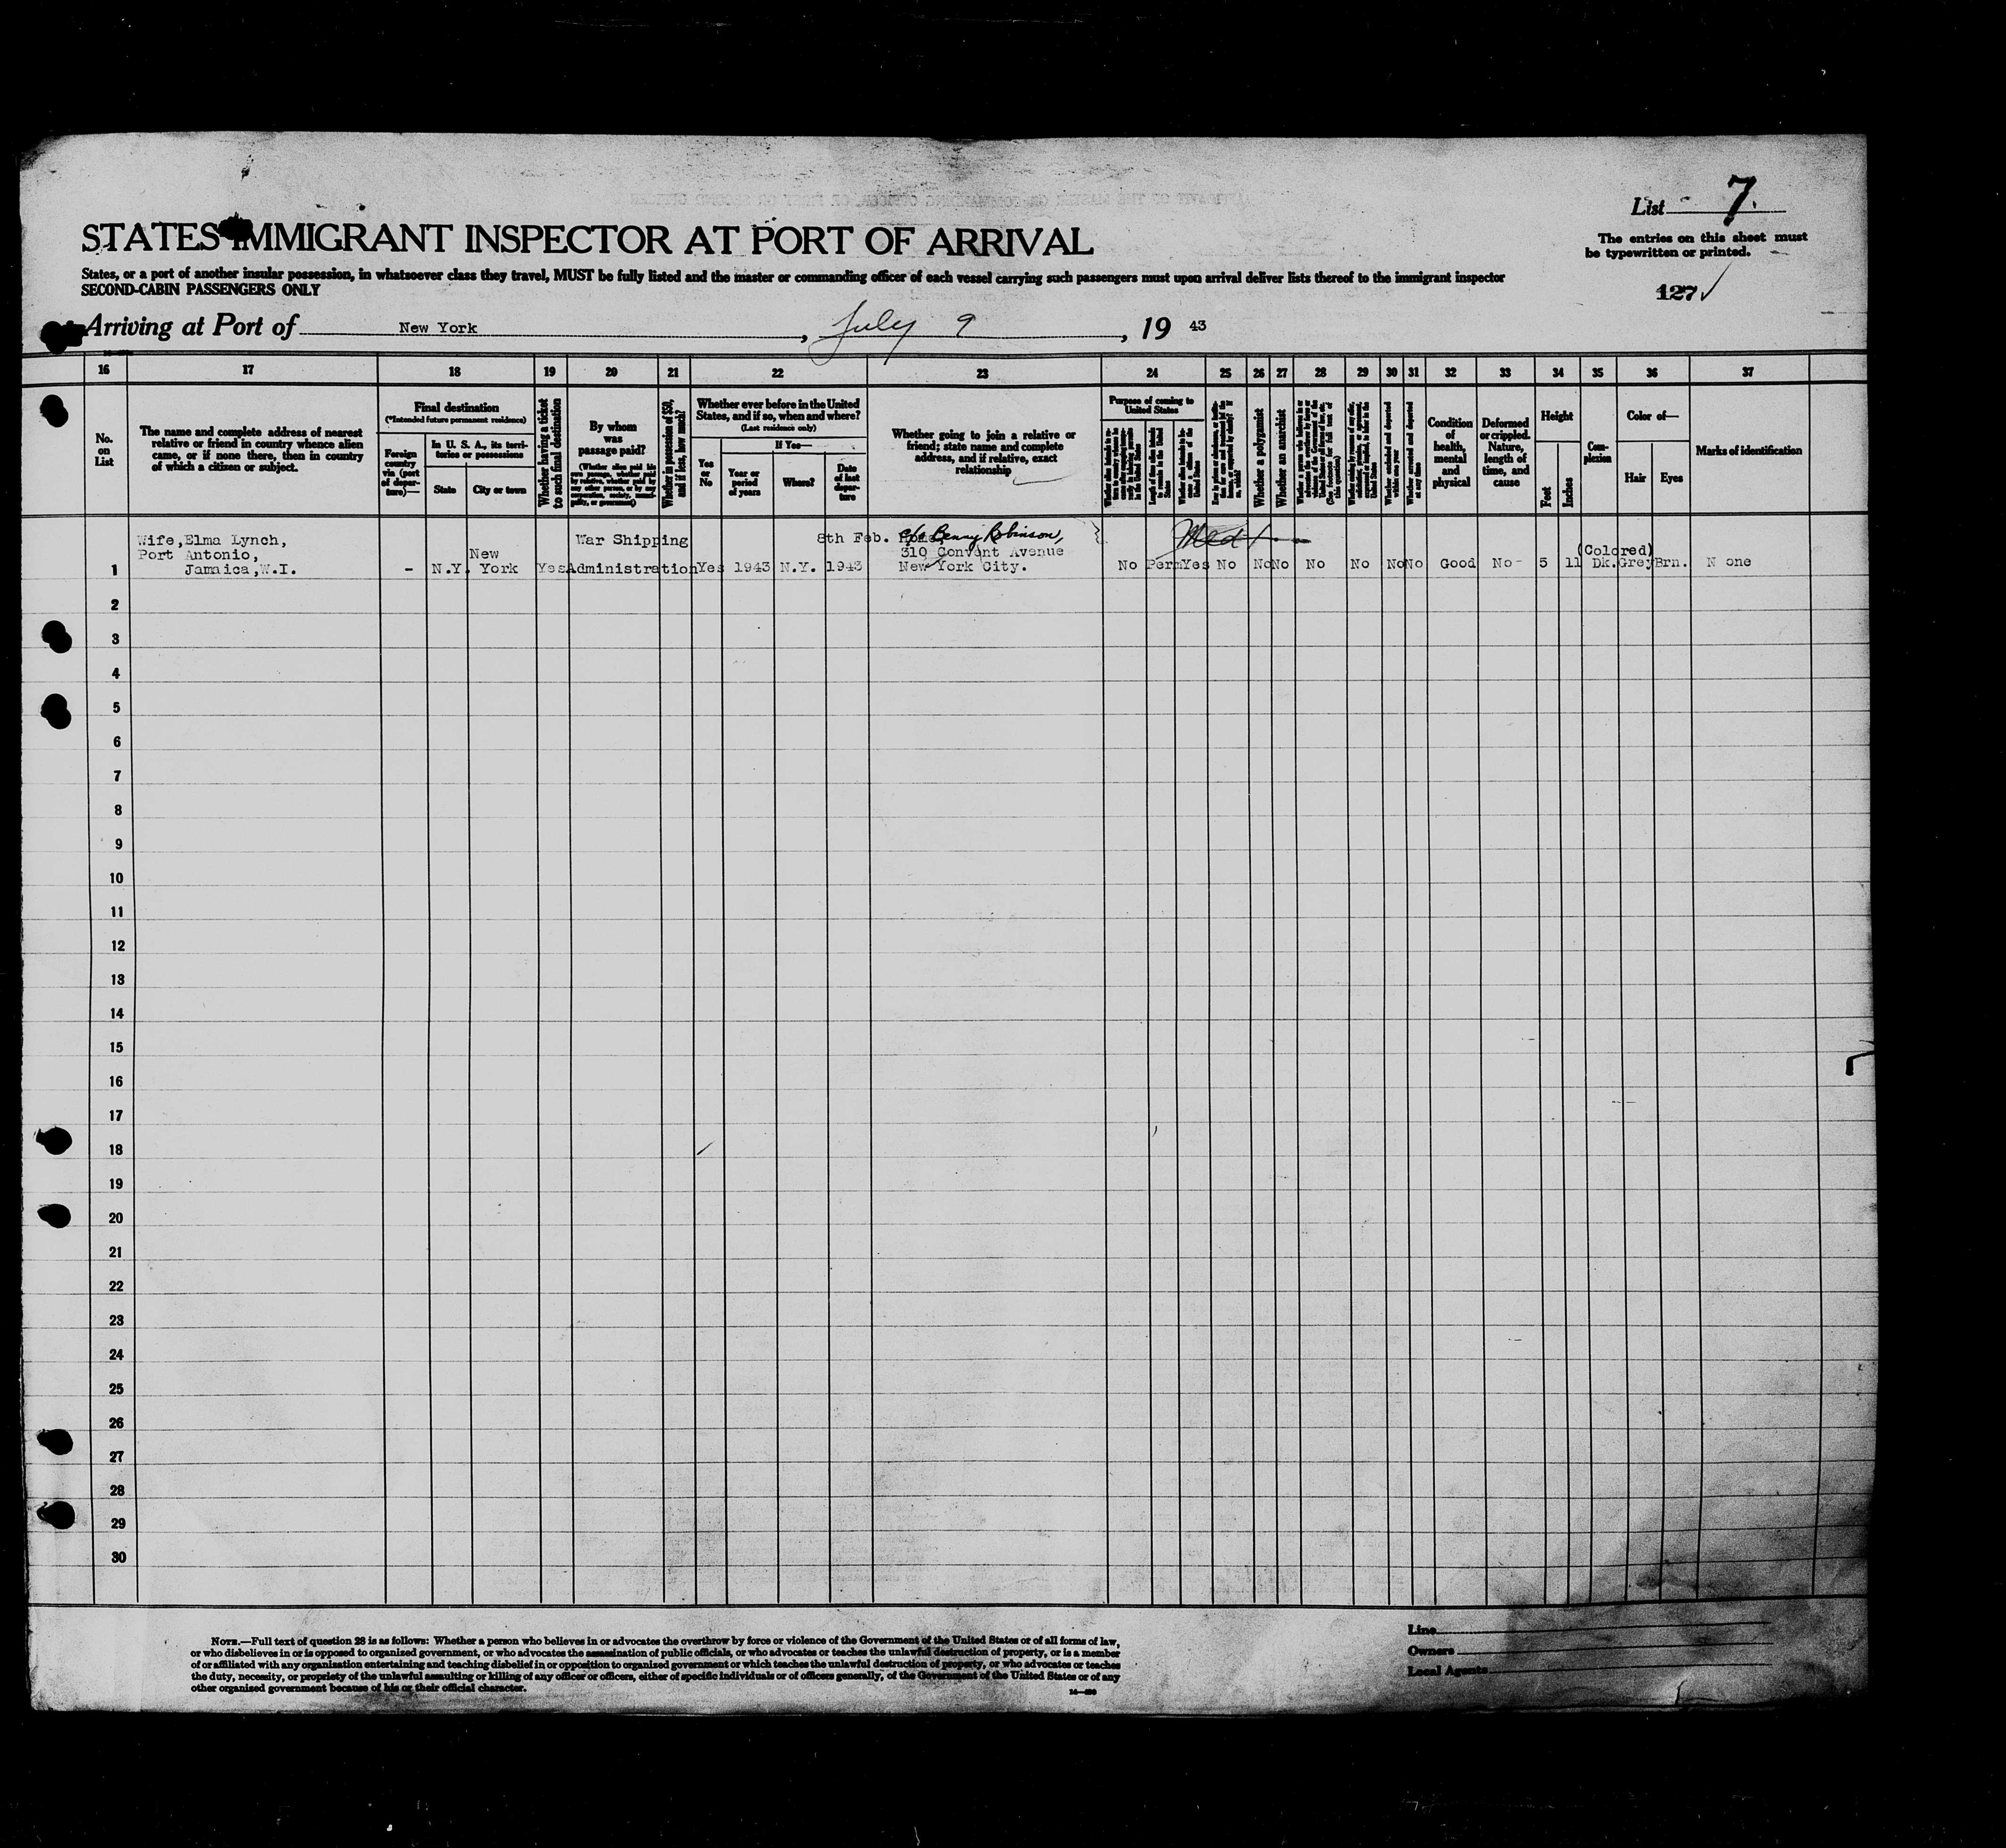 List 7.
STATES IMMIGRANT INSPECTOR AT PORT OF ARRIVAL
The entries on this sheet must
be typewritten or printed.
States, or a port of another insular possession, in whatsoever class they travel, MUST be fully listed and the master or commanding officer of each vessel carrying such passengers must upon arrival deliver lists thereof to the immigrant inspector
SECOND-CABIN PASSENGERS ONLY
127
Arriving at Port of New York, July 9, 19 43
16 17 18 19 20 21 22 23 24 25 26 27 28 29 30 31 32 33 34 35 36 37
No.
on
List
The name and complete address of nearest
relative or friend in country whence alien
came, or if none there, then in country
of which a citizen or subject.
Final destination
(*Intended future permanent residence)
Foreign
country
via (port
of depar-
ture)—
In U. S. A., its terri-
tories or possessions
State
City or town
Whether having a ticket
to such final destination
By whom
was
passage paid?
(Whether alien paid his
own passage, whether paid
by relative, whether paid by
any other person, or by any
corporation, society, munici-
pality, or government)
Whether in possession of $50,
and if less, how much?
Whether ever before in the United
States, and if so, when and where?
(Last residence only)
Yes
or
No
If Yes—
Year or
period
of years
Where?
Date
of last
depar-
ture
Whether going to join a relative or
friend; state name and complete
address, and if relative, exact
relationship
Purpose of coming to
United States
Length of time alien intends
to remain in the United
States
Whether a polygamist
Whether an anarchist
Whether arrested and deported
at any time
Condition
of
health,
mental
and
physical
Deformed
or crippled.
Nature,
length of
time, and
cause
Height
Feet
Inches
Com-
plexion
Color of—
Hair
Eyes
Marks of identification
Wife, Elma Lynch,
Port Antonio,
Jamaica, W.I.
1
- N.Y. New
York
Yes
War Shipping
Administration
Yes 1943 N.Y. 8th Feb.
1943
c/o Benny Robinson,
310 Convent Avenue
New York City.
Med
No Perm Yes No No No No No No No Good No- 5 11 (Colored)
Dk. Grey Brn. N one
2
3
4
5
6
7
8
9
10
11
12
13
14
15
16
17
18
19
20
21
22
23
24
25
26
27
28
29
30
NOTE.—Full text of question 28 is as follows: Whether a person who believes in or advocates the overthrow by force or violence of the Government of the United States or of all forms of law,
or who disbelieves in or is opposed to organized government, or who advocates the assassination of public officials, or who advocates or teaches the unlawful destruction of property, or is a member
of or affiliated with any organization entertaining and teaching disbelief in or opposition to organized government or which teaches the unlawful destruction of property, or who advocates or teaches
the duty, necessity, or propriety of the unlawful assaulting or killing of any officer or officers, either of specific individuals or of officers generally, of the Government of the United States or of any
other organized government because of his or their official character.
Line
Owners
Local Agents